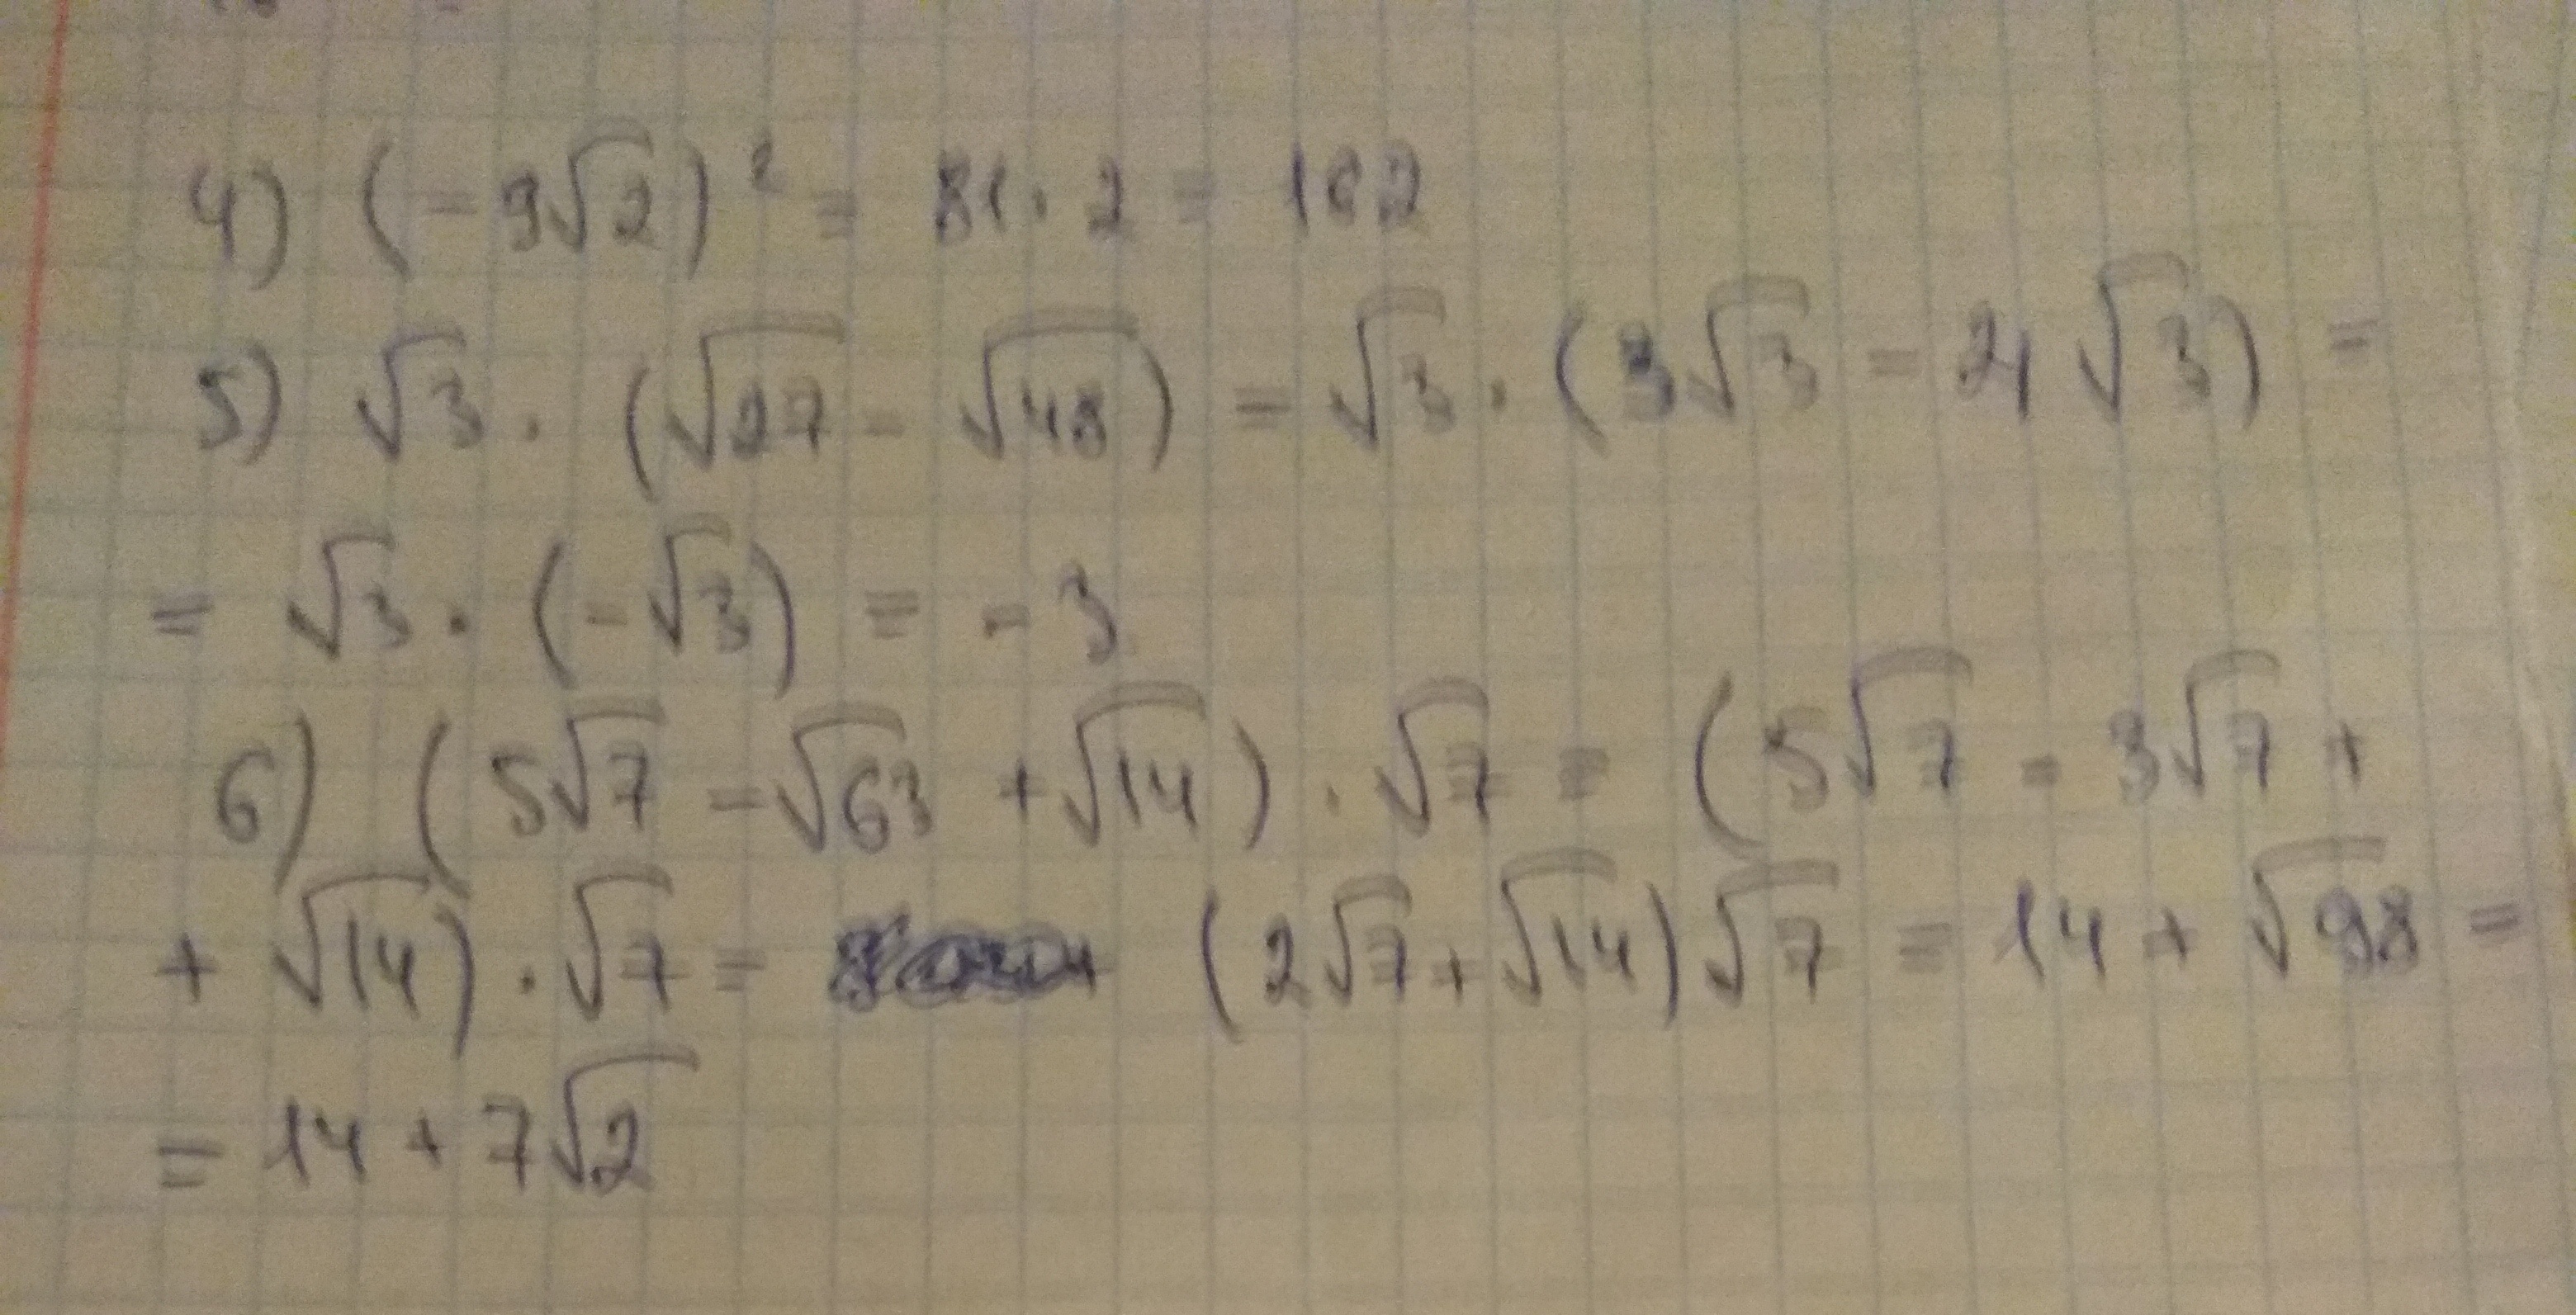 4) (-9√2)² = 81·2 = 162
5) √3 · (√27 - √48) = √3 · (3√3 - 4√3) =
= √3 · (-√3) = -3
6) (5√7 - √63 + √14) · √7 = (5√7 - 3√7 +
+ √14) · √7 = (2√7 + √14)√7 = 14 + √98 =
= 14 + 7√2